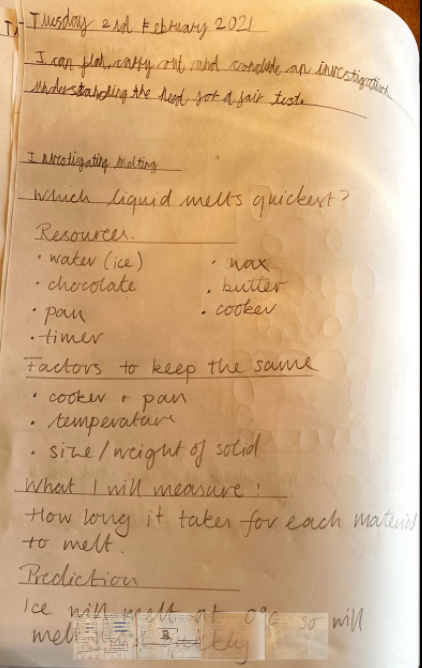 Tuesday 2nd February 2021
I can plan, carry out and conclude an investigation
understanding the need for a fair test.
Investigating melting
Which liquid melts quickest?
Resources.
· water (ice) · wax
· chocolate · butter
· pan · cooker
· timer
Factors to keep the same
· cooker + pan
· temperature
· size/weight of solid
What I will measure:
How long it takes for each material
to melt.
Prediction
Ice will melt at 0°C so will
melt